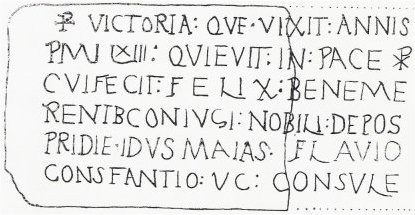 ☧ VICTORIA: QVE· VIXIT: ANNIS
PMI LXIII: QVIEVIT: IN: PACE ☧
CVIFECIT: FELIX: BENEME
RENTBCONIVGI: NOBILI: DEPOS
PRIDIE·IDVS MAIAS· FLAVIO
CONSFANTIO: VC: CONSVLE